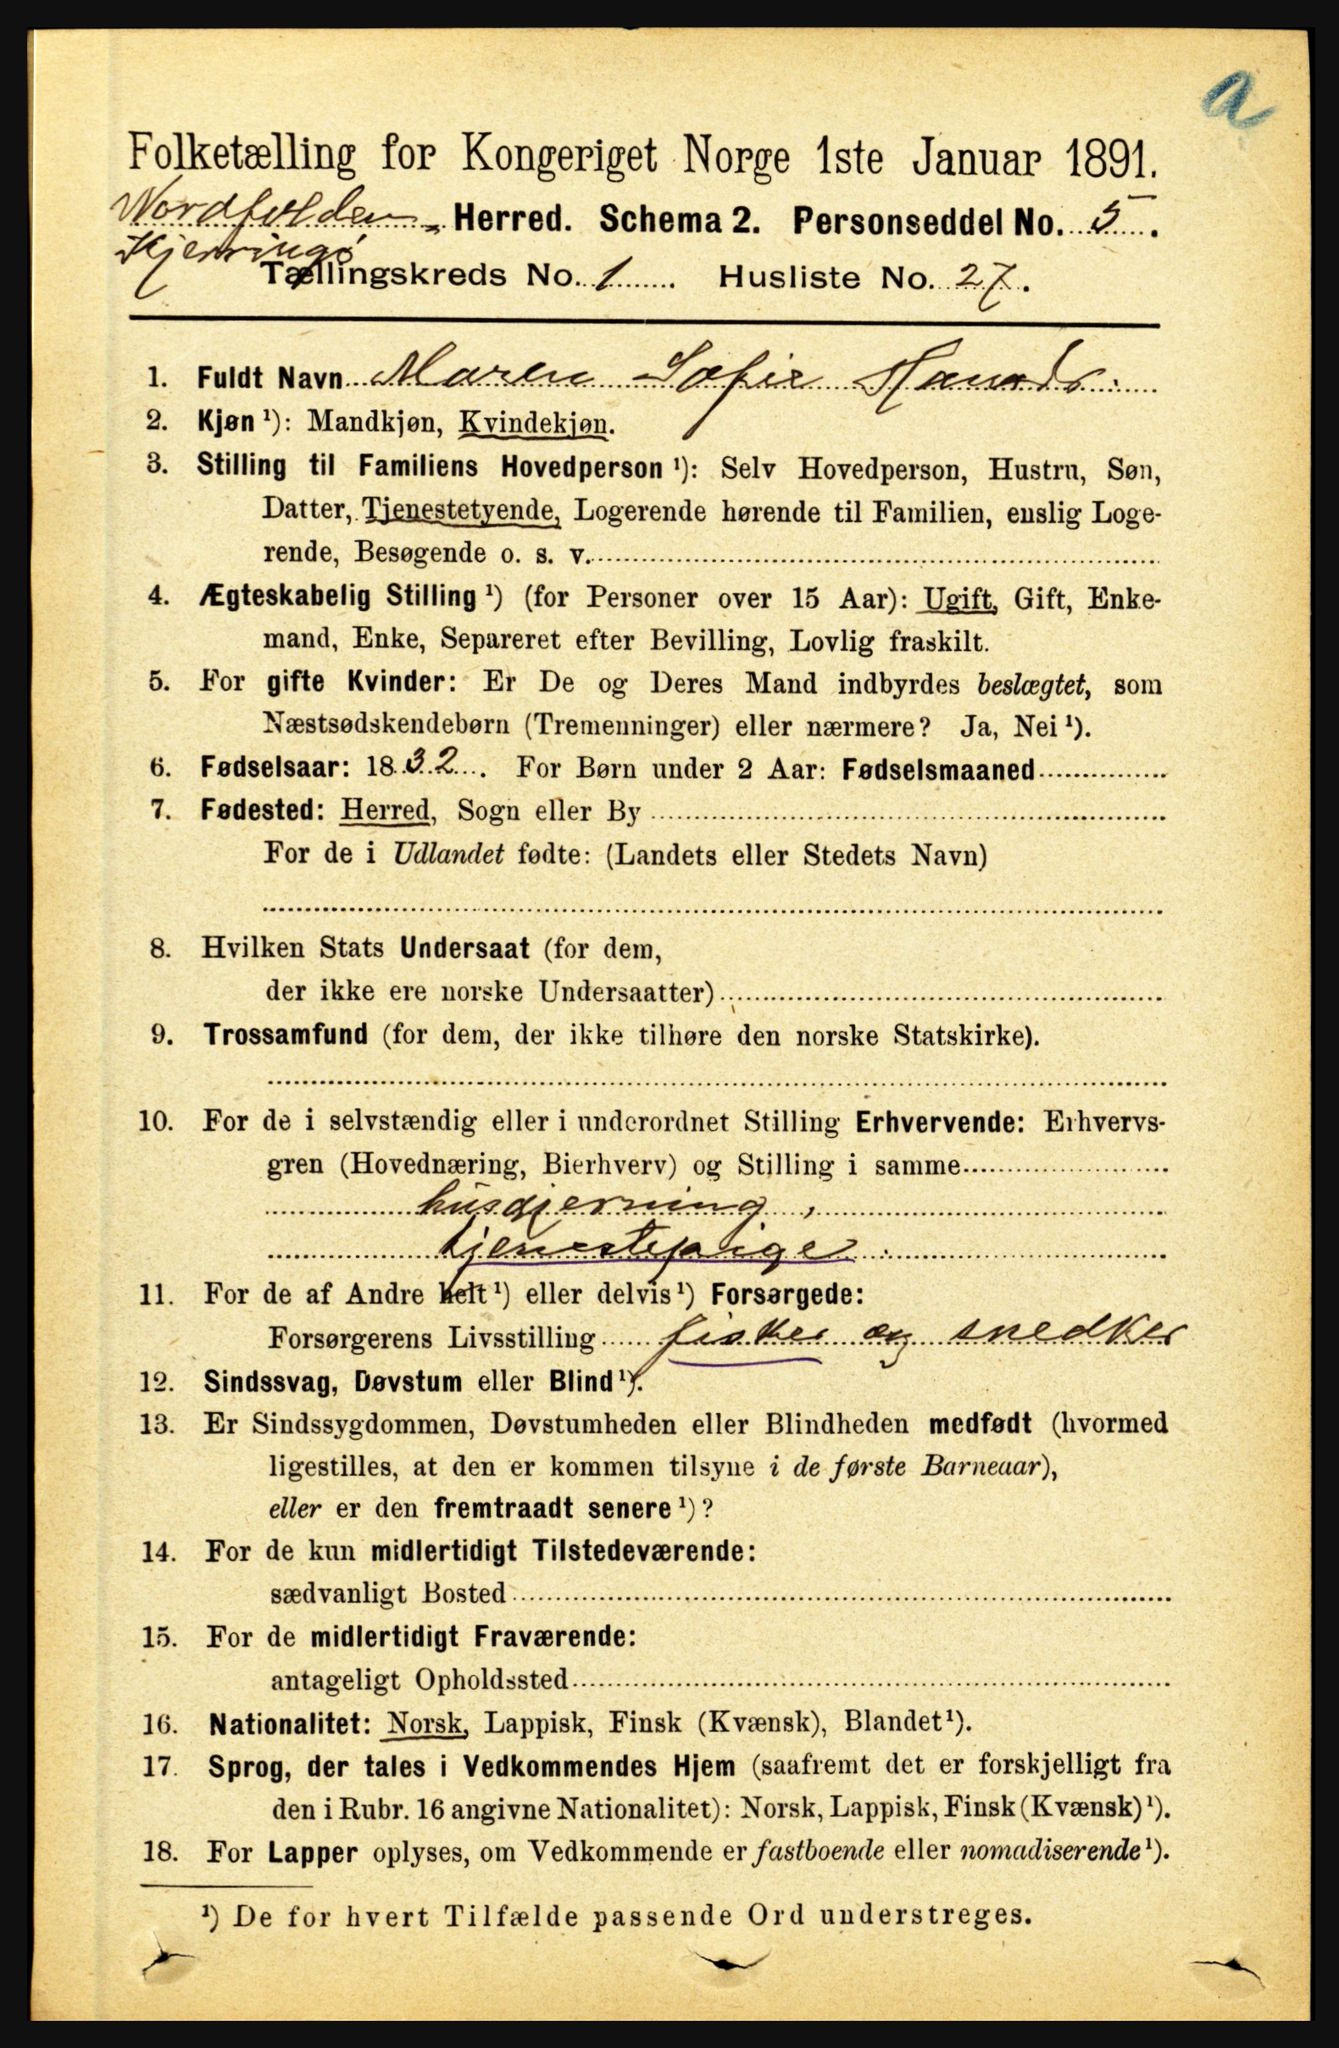 a
Folketælling for Kongeriget Norge 1ste Januar 1891.
Nordfolden- Herred. Schema 2. Personseddel No. 5.
Kjerringø
Tællingskreds No. 1. Husliste No. 27.
1. Fuldt Navn Maren Sofie
2. Kjøn ¹): Mandkjøn, Kvindekjøn.
3. Stilling til Familiens Hovedperson ¹): Selv Hovedperson, Hustru, Søn,
Datter, Tjenestetyende, Logerende hørende til Familien, enslig Loge-
rende, Besøgende o. s. v.
4. Ægteskabelig Stilling ¹) (for Personer over 15 Aar): Ugift, Gift, Enke-
mand, Enke, Separeret efter Bevilling, Lovlig fraskilt.
5. For gifte Kvinder: Er De og Deres Mand indbyrdes beslægtet, som
Næstsødskendebørn (Tremenninger) eller nærmere? Ja, Nei ¹).
6. Fødselsaar: 1832. For Børn under 2 Aar: Fødselsmaaned
7. Fødested: Herred, Sogn eller By
For de i Udlandet fødte: (Landets eller Stedets Navn)
8. Hvilken Stats Undersaat (for dem,
der ikke ere norske Undersaatter)
9. Trossamfund (for dem, der ikke tilhøre den norske Statskirke).
10. For de i selvstændig eller i underordnet Stilling Erhvervende: Erhvervs-
gren (Hovednæring, Bierhverv) og Stilling i samme
husgjerning,
tjenestepige.
11. For de af Andre helt ¹) eller delvis ¹) Forsørgede:
Forsørgerens Livsstilling fisker og snedker
12. Sindssvag, Døvstum eller Blind ¹).
13. Er Sindssygdommen, Døvstumheden eller Blindheden medfødt (hvormed
ligestilles, at den er kommen tilsyne i de første Barneaar),
eller er den fremtraadt senere ¹)?
14. For de kun midlertidigt Tilstedeværende:
sædvanligt Bosted
15. For de midlertidigt Fraværende:
antageligt Opholdssted
16. Nationalitet: Norsk, Lappisk, Finsk (Kvænsk), Blandet ¹).
17. Sprog, der tales i Vedkommendes Hjem (saafremt det er forskjelligt fra
den i Rubr. 16 angivne Nationalitet): Norsk, Lappisk, Finsk (Kvænsk) ¹).
18. For Lapper oplyses, om Vedkommende er fastboende eller nomadiserende ¹).
¹) De for hvert Tilfælde passende Ord understreges.